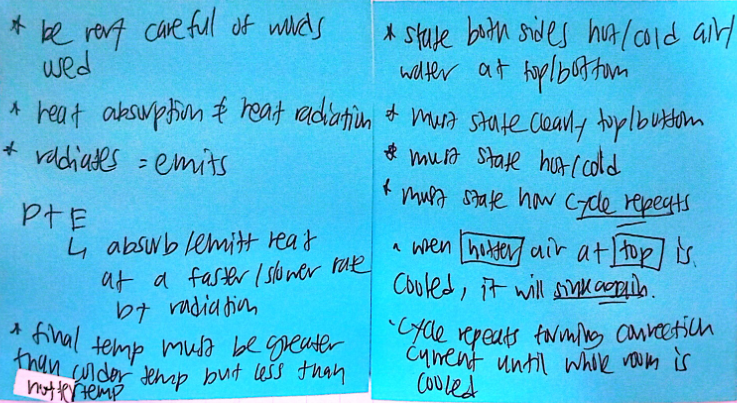 * be very careful of words
used
* heat absorption & heat radiation
* radiates = emits
P+E
↳ absorb/emitt heat
at a faster/slower rate
by radiation
* final temp must be greater
than colder temp but less than
hotter temp
* state both sides hot/cold air/
water at top/bottom
* must state clearly top/bottom
* must state hot/cold
* must state how cycle repeats
^ when hotter air at top is
cooled, it will sink again.
- cycle repeats forming convection
current until whole room is
cooled